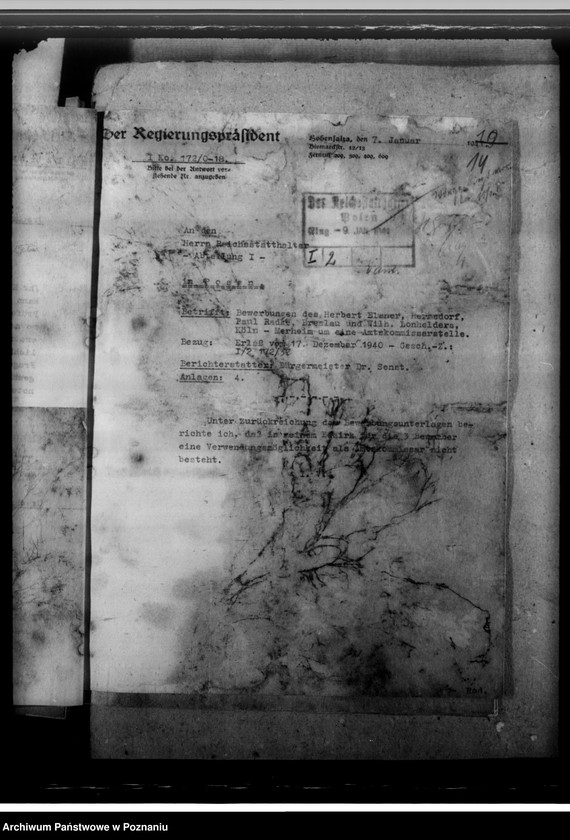 Der Regierungspräsident
I Ko. 172/0-18.
Bitte bei der Antwort vor-
stehende Nr. anzugeben
Hohensalza, den 7. Januar
Bismarckstr. 12/13
Fernruf 209, 309, 409, 609
14
Der Reichsstatthalter
Posen
Eing - 9. JAN.
I 2
An den
Herrn Reichsstatthalter
- Abteilung I -
in Posen.
Betrifft: Bewerbungen des Herbert Elsner, Hermsdorf,
Paul Radke, Breslau und Wilh. Lonheiders,
Köln - Merheim um eine Amtskommissarstelle.
Bezug: Erlaß vom 17. Dezember 1940 - Gesch.-Z.:
Berichterstatter: Bürgermeister Dr. Senst.
Anlagen: 4.
Unter Zurückreichung der Bewerbungsunterlagen be-
richte ich, daß in meinem Bezirk für die 3 Bewerber
eine Verwendungsmöglichkeit als Amtskommissar nicht
besteht.
Archiwum Państwowe w Poznaniu